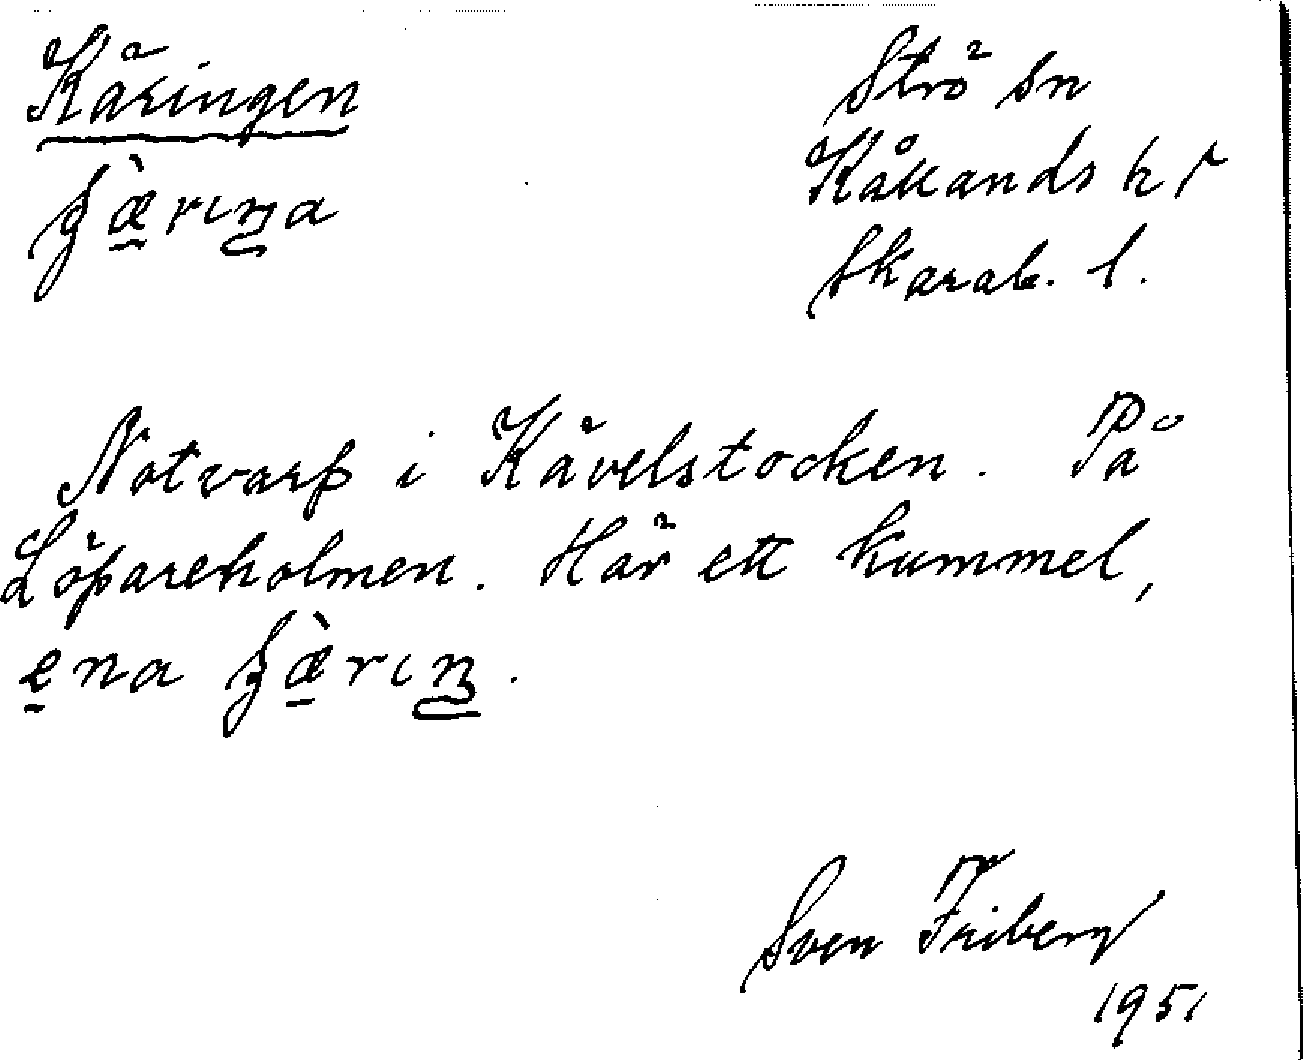 Käringen
Strö sn
Kåkands hd
Skarab. l.
Notvarp i Kävelstocken. På
Löpareholmen. Här ett kummel,
ena
Sven Friberg
1951